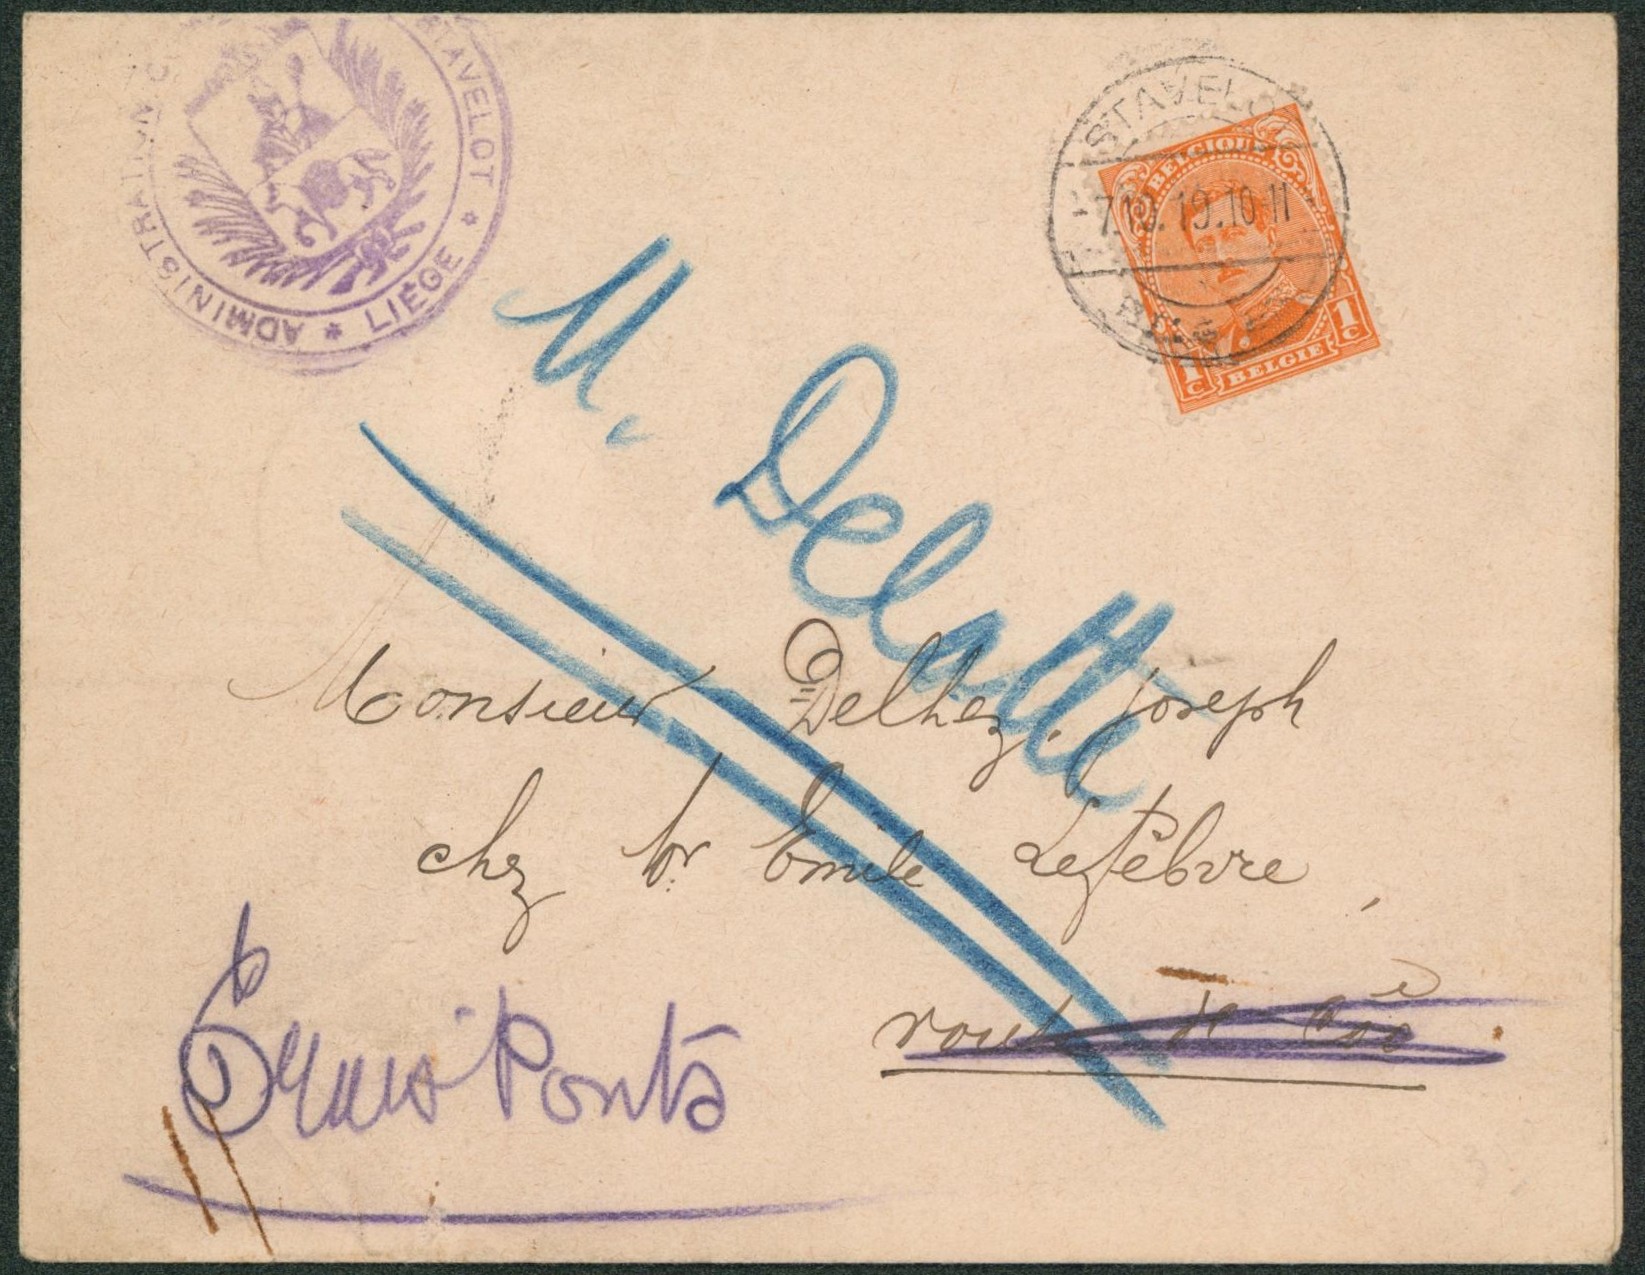 ADMINISTRATION STAVELOT * LIÉGE *
STAVELOT
7.10.19.10-11
BELGIQUE
1c 1c
BELGIE
M. Delatte
Monsieur Delhez Joseph
chez Mr Emile Lefèbvre,
route de Coo
Ponts